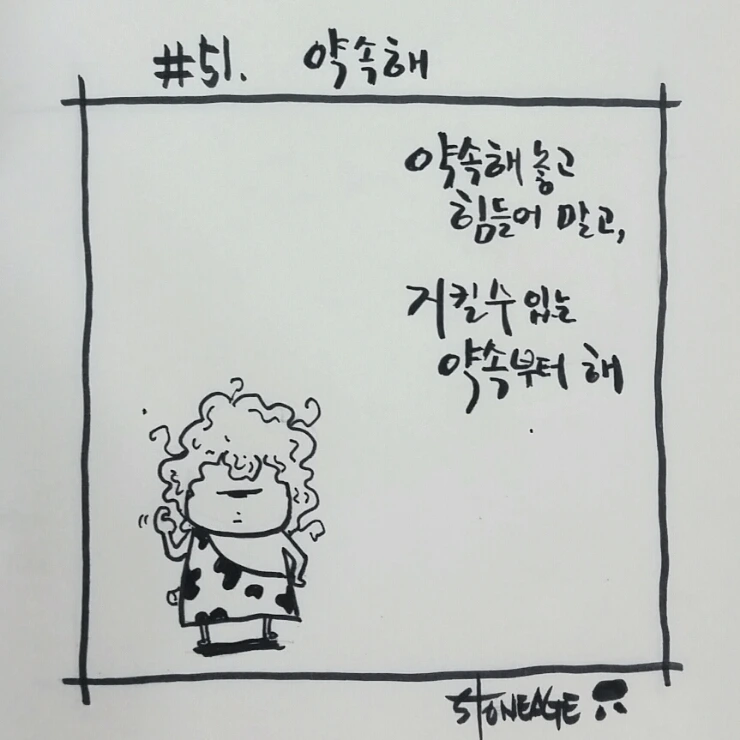 #51. 약속해
약속해 놓고
힘들어 말고,
지킬 수 있는
약속부터 해
STONEAGE